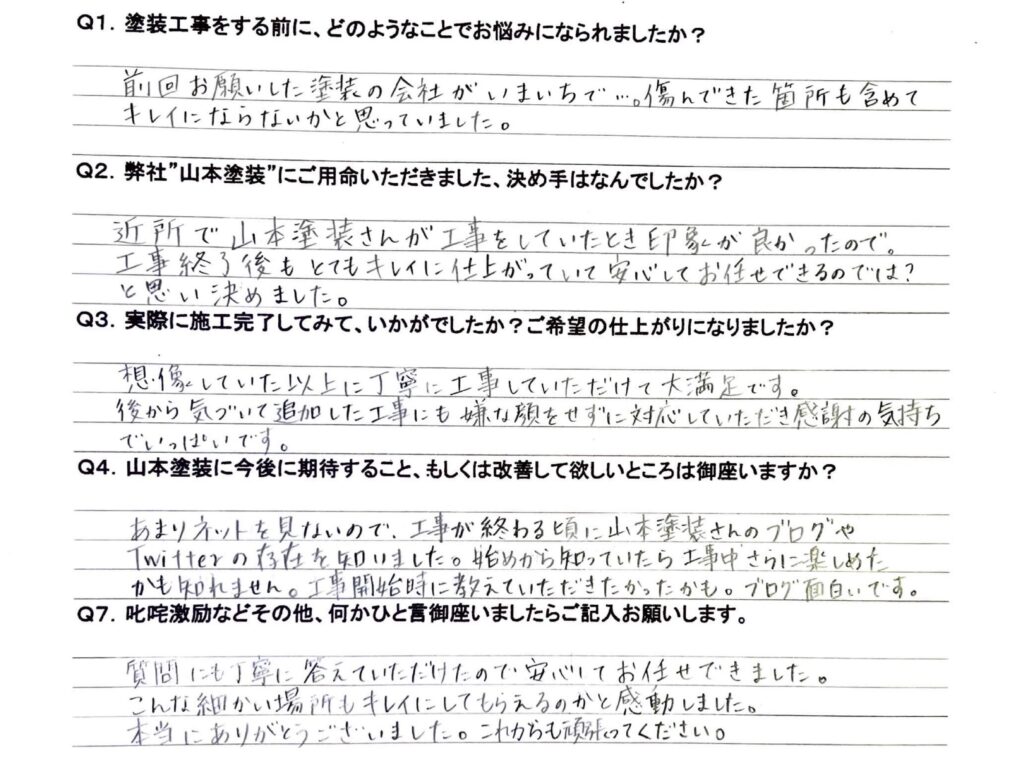 Q1. 塗装工事をする前に、どのようなことでお悩みになられましたか？
前回お願いした塗装の会社がいまいちで…。傷んできた箇所も含めて
キレイにならないかと思っていました。
Q2. 弊社”山本塗装”にご用命いただきました、決め手はなんでしたか？
近所で山本塗装さんが工事をしていたとき印象が良かったので。
工事終了後もとてもキレイに仕上がっていて安心してお任せできるのでは?
と思い決めました。
Q3. 実際に施工完了してみて、いかがでしたか？ご希望の仕上がりになりましたか？
想像していた以上に丁寧に工事していただけて大満足です。
後から気づいて追加した工事にも嫌な顔をせずに対応していただき感謝の気持ち
でいっぱいです。
Q4. 山本塗装に今後に期待すること、もしくは改善して欲しいところは御座いますか？
あまりネットを見ないので、工事が終わる頃に山本塗装さんのブログや
Twitterの存在を知いました。始めから知っていたら工事中さらに楽しめた
かも知れません。工事開始時に教えていただきたかったかも。ブログ面白いです。
Q7. 叱咤激励などその他、何かひと言御座いましたらご記入お願いします。
質問にも丁寧に答えていただけたので安心してお任せできました。
こんな細かい場所もキレイにしてもらえるのかと感動しました。
本当にありがとうございました。これからも頑張ってください。